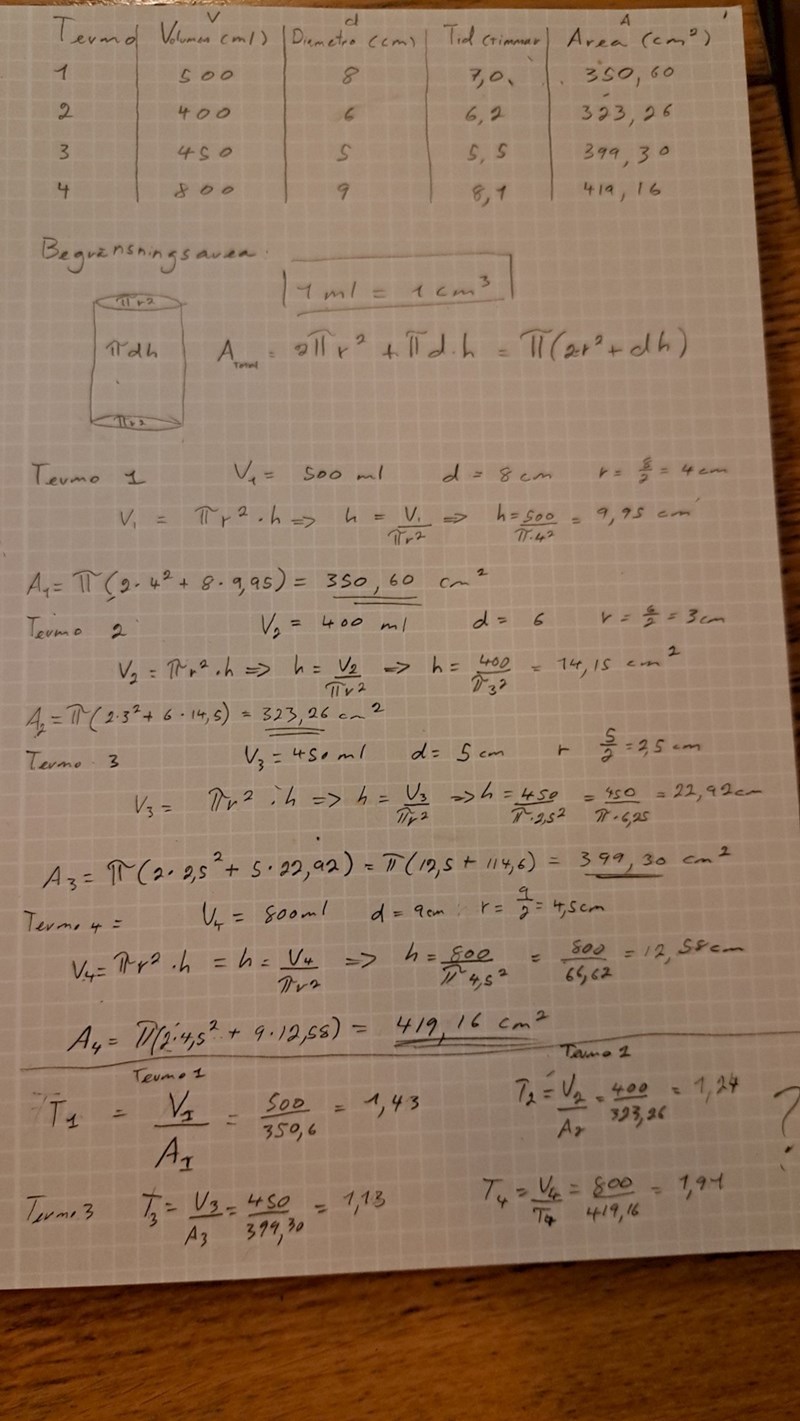 V d A
Termo Volumen (ml) Diametro (cm) Tid (timmar) Area (cm²)
1 500 8 7,0 350,60
2 400 6 6,2 323,26
3 450 5 5,5 399,30
4 800 9 8,1 419,16
Begränsningsarea
1 ml = 1 cm³
πr²
πdh A_Total = 2πr² + πd·h = π(2r² + dh)
πr²
Termo 1 V₁ = 500 ml d = 8 cm r = 8/2 = 4 cm
V₁ = πr²·h => h = V₁/πr² => h = 500/π·4² = 9,95 cm
A₁ = π(2·4² + 8·9,95) = 350,60 cm²
Termo 2 V₂ = 400 ml d = 6 r = 6/2 = 3 cm
V₂ = πr²·h => h = V₂/πr² => h = 400/π3² = 14,15 cm²
A₂ = π(2·3² + 6·14,5) = 323,26 cm²
Termo 3 V₃ = 450 ml d = 5 cm r 5/2 = 2,5 cm
V₃ = πr²·h => h = V₃/πr² => h = 450/π·2,5² = 450/π·6,25 = 22,92 cm
A₃ = π(2·2,5² + 5·22,92) = π(12,5 + 114,6) = 399,30 cm²
Termo 4 = V₄ = 800 ml d = 9 cm r = 9/2 = 4,5 cm
V₄ = πr²·h = h = V₄/πr² => h = 800/π4,5² = 800/66,62 = 12,58 cm
A₄ = π(2·4,5² + 9·12,58) = 419,16 cm²
Termo 1 Termo 2
T₁ = V₁/A₁ = 500/350,6 = 1,43 T₂ = V₂/A₂ = 400/323,26 = 1,24 ?
Termo 3 T₃ = V₃/A₃ = 450/399,30 = 1,13 T₄ = V₄/T₄ = 800/419,16 = 1,91